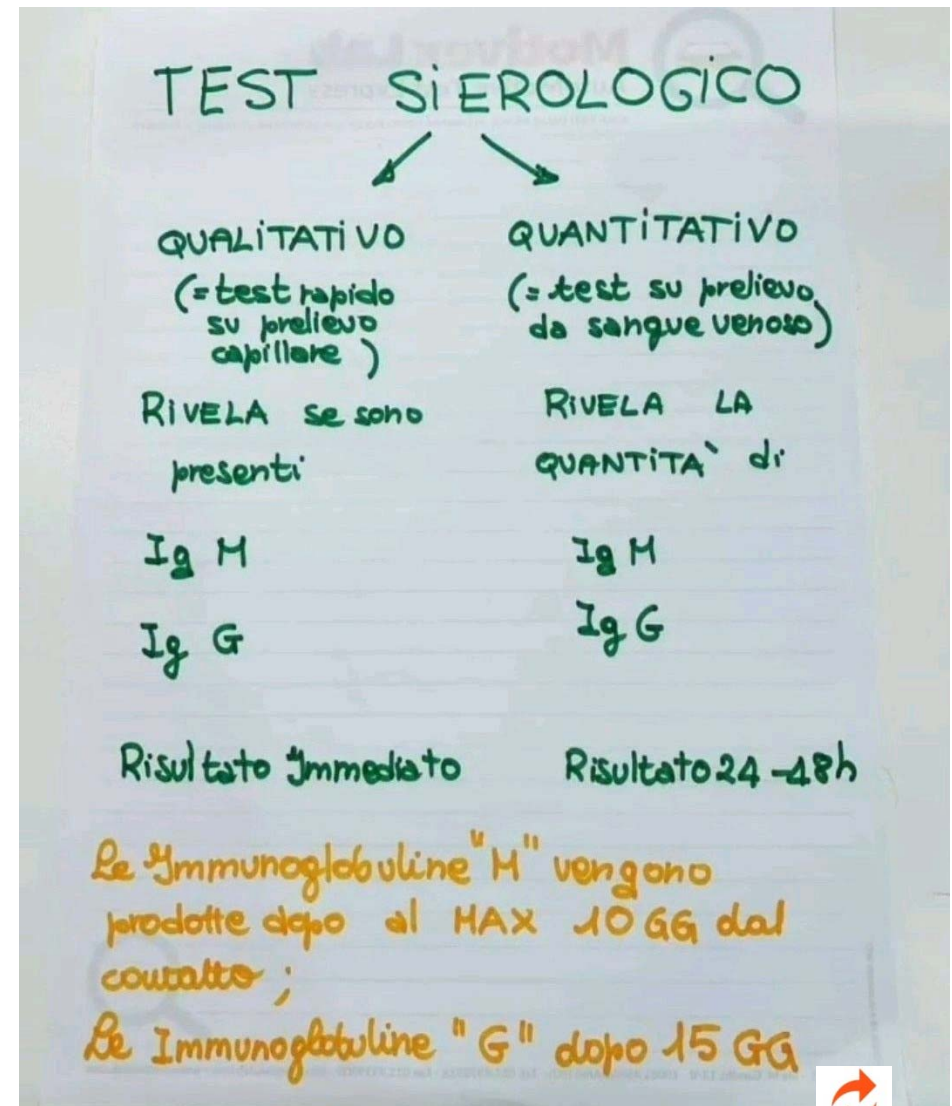 TEST SiEROLOGiCO
QUALiTATiVO
(= test rapido
su prelievo
capillare)
RiVELA se sono
presenti
Ig M
Ig G
Risultato Immediato
QUANTiTATiVO
(= test su prelievo
da sangue venoso)
RiVELA LA
QUANTiTA` di
Ig M
Ig G
Risultato 24-48h
Le Immunoglobuline "M" vengono
prodotte dopo al MAX 10 GG dal
contatto;
Le Immunoglobuline "G" dopo 15 GG